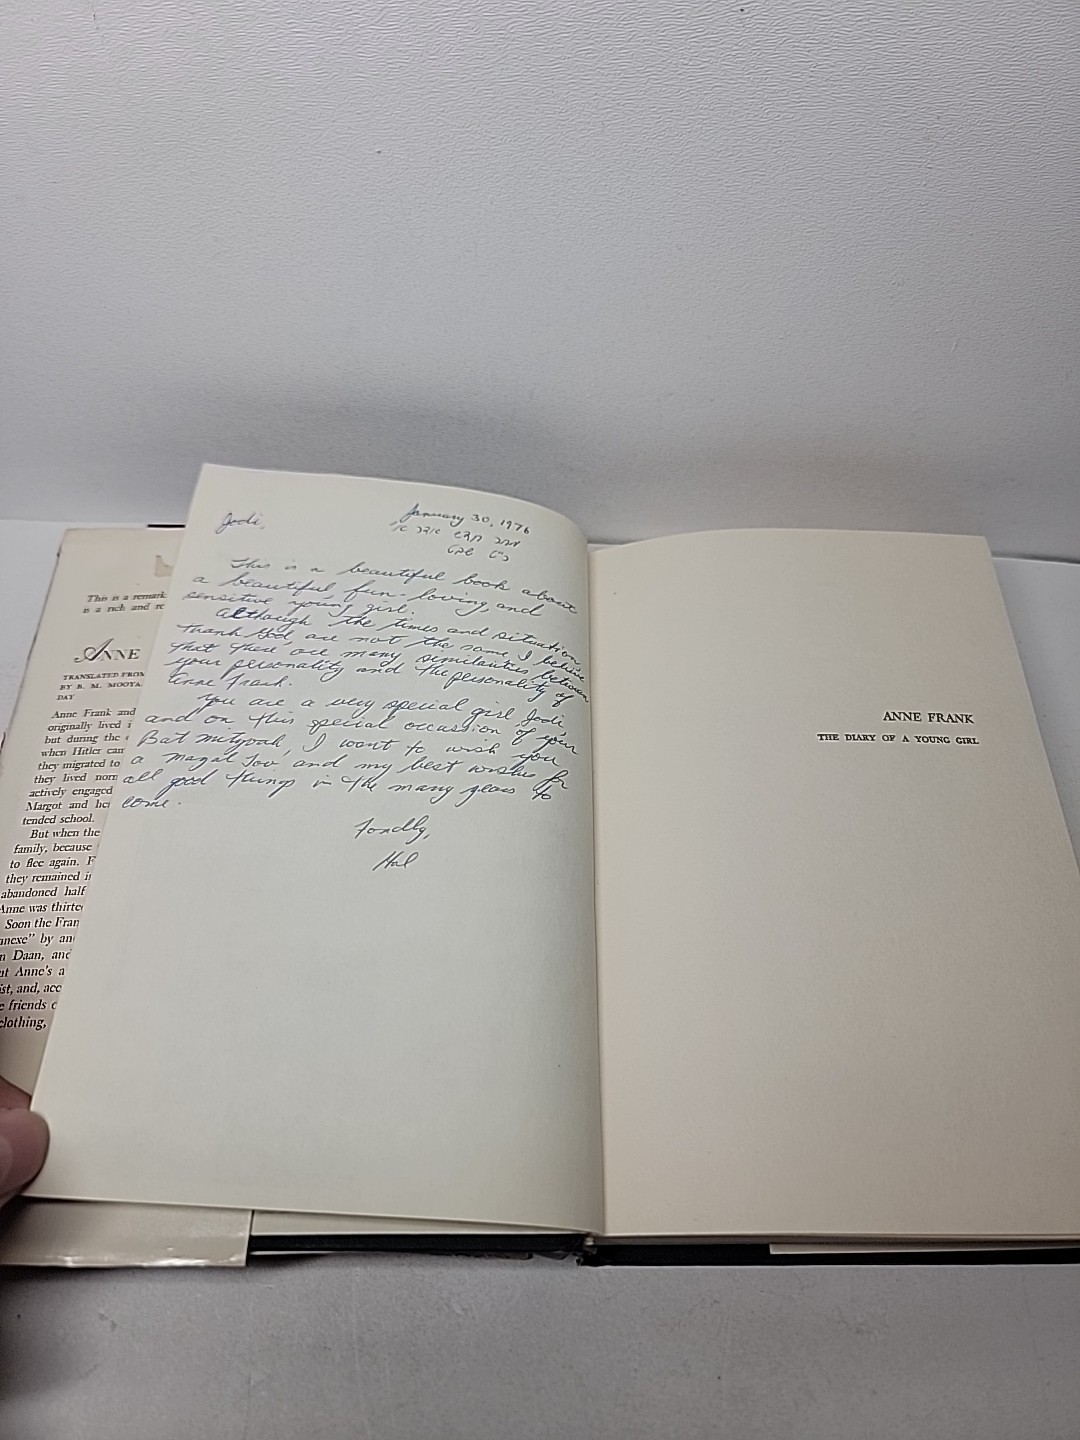 This is a remark
is a rich and re
ANNE
TRANSLATED FROM
BY B. M. MOOYA
DAY
Anne Frank and
originally lived i
but during the
when Hitler cam
they migrated to
they lived nor
actively engaged
Margot and he
tended school.
But when the
family, because
to flee again. F
they remained i
abandoned half
Anne was thirte
Soon the Fran
nexe" by an
n Daan, and
ut Anne's a
ist, and, acc
e friends c
clothing,
January 30, 1976
Jodi,
This is a beautiful book about
a beautiful, fun-loving, and
sensitive young girl.
Although the times and situation,
thank God, are not the same, I believe
that there are many similarities between
your personality and the personality of
Anne Frank.
You are a very special girl Jodi,
and on this special occassion of your
Bat mitzvah, I want to wish you
a mazal Tov and my best wishes for
all good things in the many years to
come.
Fondly,
Hal
ANNE FRANK
THE DIARY OF A YOUNG GIRL